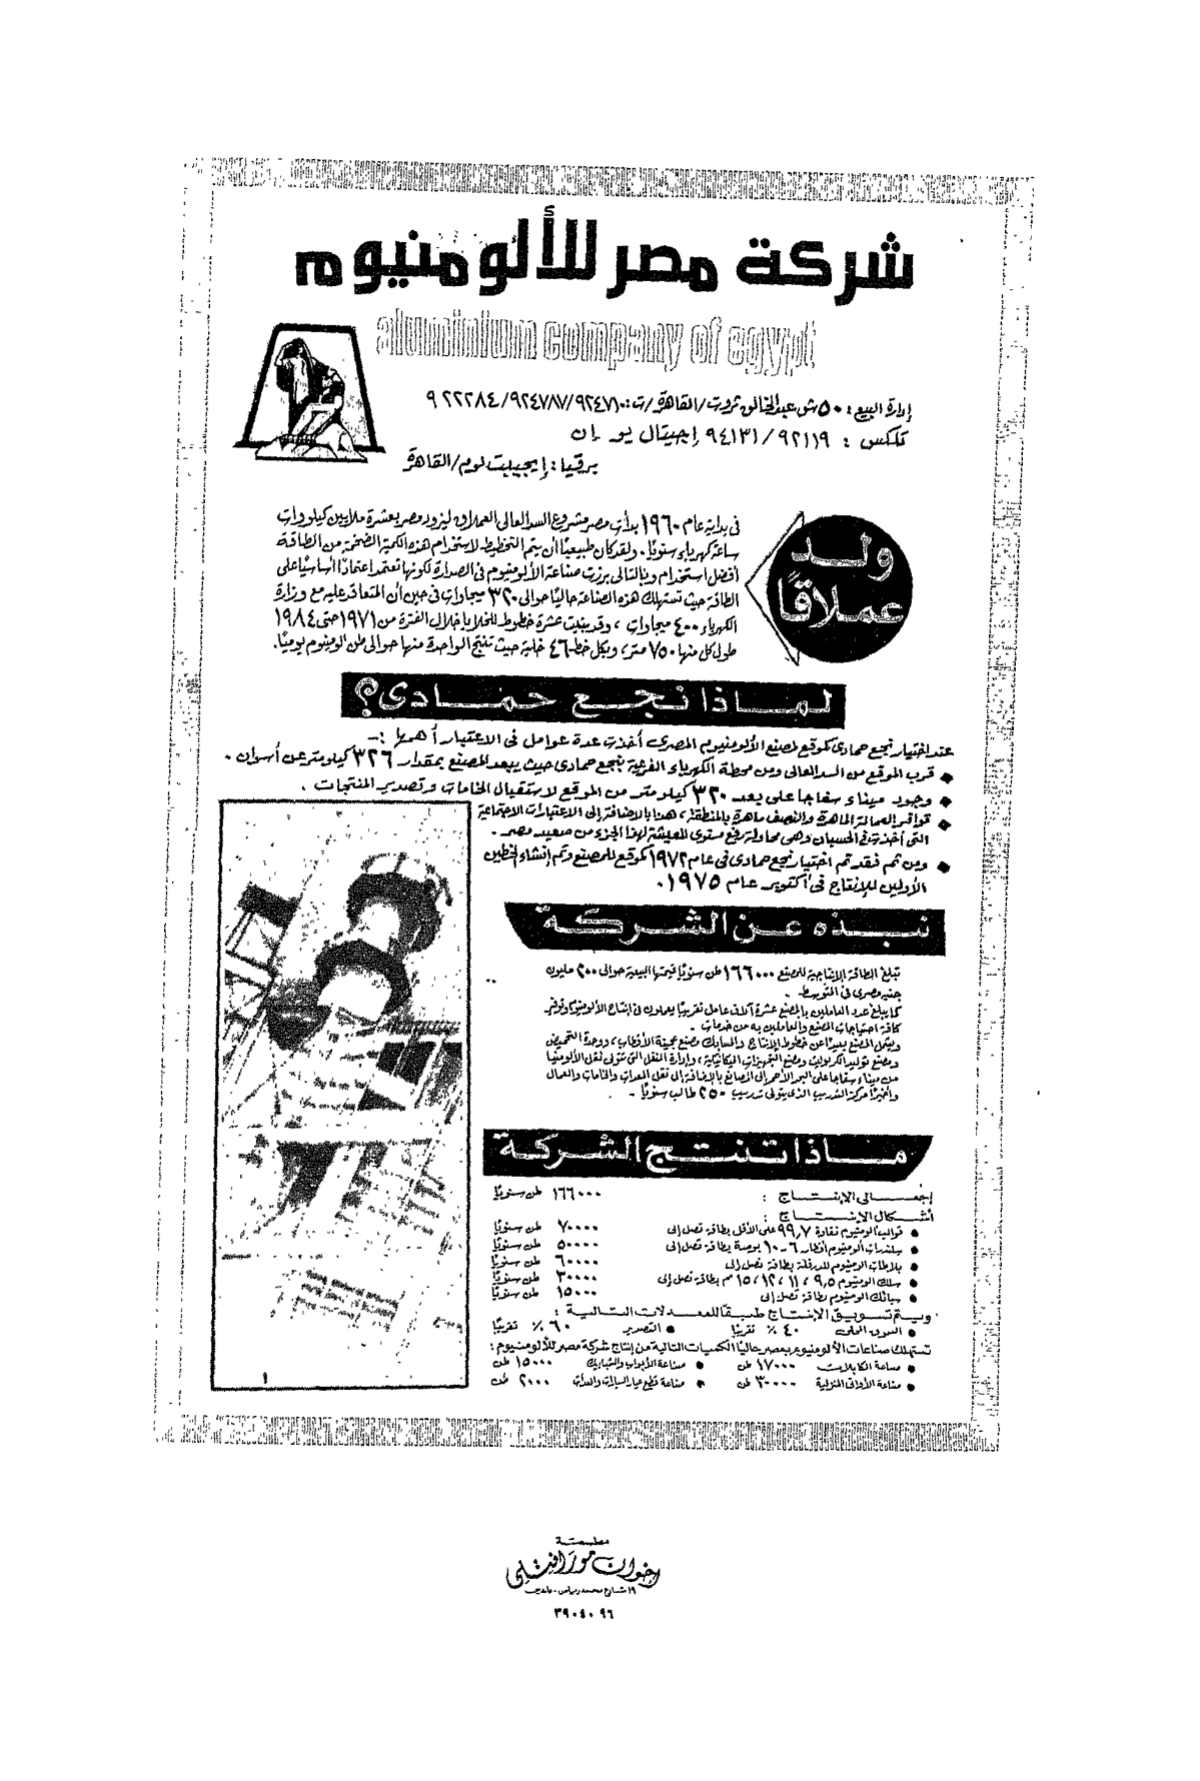 شركة مصر للألومنيوم
aluminium company of egypt
إدارة البيع : ٥٠ ش عبد الخالق ثروت / القاهرة / ت : ٩٢٤٧١٠ / ٩٢٤٧٨٧ / ٩٢٢٢٨٤
تلكس : ٩٢١١٩ / ٩٤١٣١ إجيتال يو . إن
برقيا : إيجيبت لوم / القاهرة
ولد
عملاقًا
فى بداية عام ١٩٦٠ بدأت مصر مشروع السد العالى العملاق ليزود مصر بعشرة ملايين كيلووات
ساعة كهرباء سنويًا . ولقد كان طبيعيًا أن يتم التخطيط لاستخدام هذه الكمية الضخمة من الطاقة
أفضل استخدام وبالتالى برزت صناعة الألومنيوم فى الصدارة لكونها تعتمد اعتمادًا أساسيًا على
الطاقة حيث تستهلك هذه الصناعة حاليًا حوالى ٣٢٠ ميجاوات فى حين أن المتعاقد عليه مع وزارة
الكهرباء ٤٠٠ ميجاوات ، وقد بنيت عشرة خطوط للخلايا خلال الفترة من ١٩٧١ حتى ١٩٨٤
طول كل منها ٧٥٠ متر، وبكل خط ٤٦ خلية حيث تنتج الواحدة منها حوالى طن ألومنيوم يوميًا .
لماذا نجع حمادى ؟
عند اختيار نجع حمادى كموقع لمصنع الألومنيوم المصرى أخذت عدة عوامل فى الاعتبار أهمها : -
◆ قرب الموقع من السد العالى ومن محطة الكهرباء الفرعية بنجع حمادى حيث يبعد المصنع بمقدار ٣٢٦ كيلومتر عن أسوان .
◆ وجود ميناء سفاجا على بعد ٣٢٠ كيلومتر من الموقع لاستقبال الخامات وتصدير المنتجات .
◆ توافر العمالة الماهرة والنصف ماهرة بالمنطقة ، هذا بالاضافة إلى الاعتبارات الاجتماعية
التى أخذت فى الحسبان وهى محاولة رفع مستوى المعيشة لهذا الجزء من صعيد مصر .
◆ ومن ثم فقد تم اختيار نجع حمادى فى عام ١٩٧٢ كموقع للمصنع وتم إنشاء الخطين
الأولين للإنتاج فى أكتوبر عام ١٩٧٥ .
نبذه عن الشركة
تبلغ الطاقة الإنتاجية للمصنع ١٦٦٠٠٠ طن سنويًا قيمتها البيعية حوالى ٢٠٠ مليون
جنيه مصرى فى المتوسط .
كما يبلغ عدد العاملين بالمصنع عشرة آلاف عامل تقريبًا يعملون فى إنتاج الألومنيوم وتوفير
كافة احتياجات المصنع والعاملين به من خدمات .
ويشمل المصنع بعيدًا عن خطوط الإنتاج والمسابك مصنع عجينة الأقطاب ، ووحدة التحميص
ومصنع توليد الكربولت ومصنع التجهيزات الميكانيكية ، وإدارة النقل التى تتولى نقل الألومنيا
من ميناء سفاجا على البحر الأحمر إلى المصانع بالإضافة إلى نقل المعدات والخامات والعمال
وأخيرًا مركز التدريب الذى يتولى تدريب ٢٥٠ طالب سنويًا .
ماذا تنتج الشركة
إجمالى الإنتاج : ١٦٦٠٠٠ طن سنويًا
أشكال الإنتاج :
● قوالب ألومنيوم نقاوة ٩٩,٧ على الأقل بطاقة تصل إلى ٧٠٠٠٠ طن سنويًا
● سلندرات ألومنيوم أقطار ٦ - ١٠ بوصة بطاقة تصل إلى ٥٠٠٠٠ طن سنويًا
● بلاطات ألومنيوم للدرفلة بطاقة تصل إلى ٦٠٠٠٠ طن سنويًا
● سلك ألومنيوم ٩,٥ ، ١١ ، ١٢ ، ١٥ مم بطاقة تصل إلى ٣٠٠٠٠ طن سنويًا
● سبائك ألومنيوم بطاقة تصل إلى ١٥٠٠٠ طن سنويًا
ويتم تسويق الإنتاج طبقًا للمعدلات التالية :
● السوق المحلى ٤٠ ٪ تقريبًا ● التصدير ٦٠ ٪ تقريبًا
تستهلك صناعات الألومنيوم بمصر حاليًا الكميات التالية من إنتاج شركة مصر للألومنيوم :
● صناعة الكابلات ١٧٠٠٠ طن ● صناعة الأبواب والشبابيك ١٥٠٠٠ طن
● صناعة الأوانى المنزلية ٣٠٠٠٠ طن ● صناعة قطع غيار السيارات والمعدات ٢٠٠٠ طن
مطبعة
إخوان مورافتلى
١٩ شارع محمد رياض - عابدين
٣٩٠٤٠٩٦